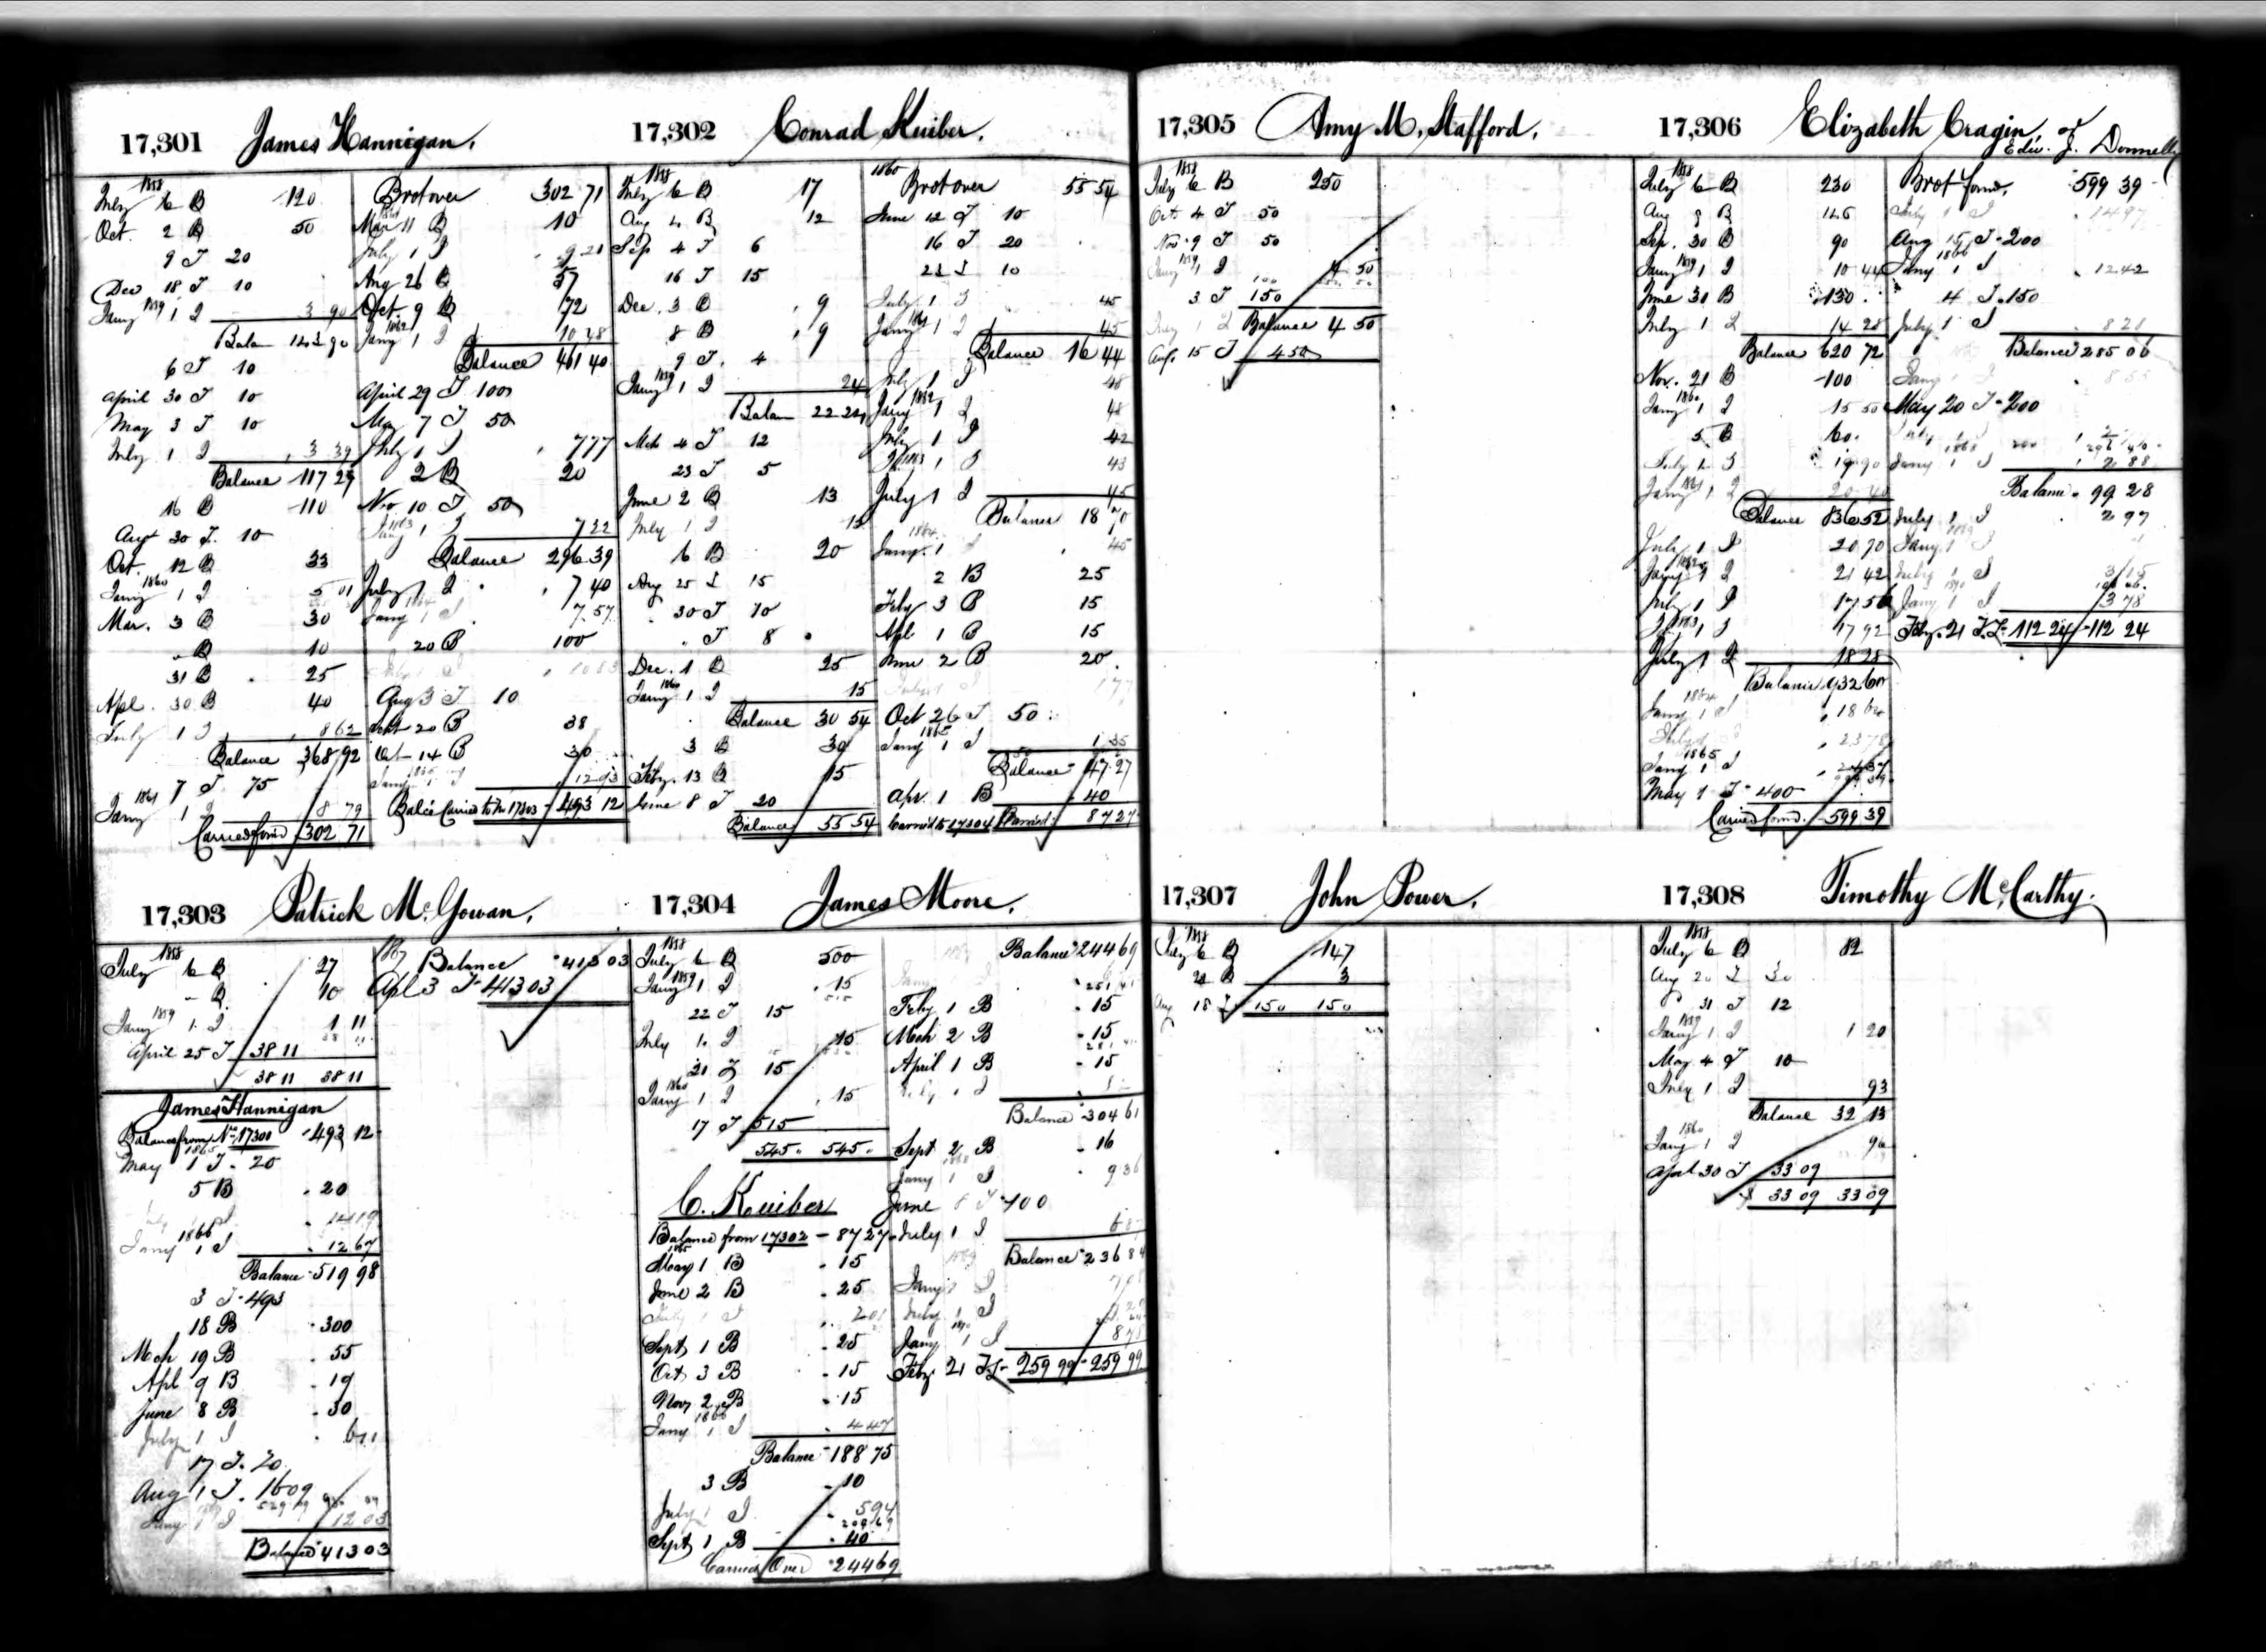 17,301 James Hannigan.
1858
July 6 B 120
Oct. 2 B 50
9 T 20
Dec 18 T 10
Jany 1859 1 I 3 90
Balan 143 90
6 T 10
April 30 T 10
May 3 T 10
July 1 I 3 39
Balance 117 29
16 B 110
Augt 30 T. 10
Oct. 12 B 33
1860
Jany 1 I 5 01
Mar. 3 B 30
" B 10
31 B 25
Apl. 30 B 40
July 1 I 8 62
Balance 368 92
7 T 75
1861
Jany 1 I 8 79
Carried forwd 302 71
Brot over 302 71
Mar 11 B 10
July 1 I 9 21
Aug 26 B 57
Oct. 9 B 72
1862
Jany 1 I 10 48
Balance 461 40
April 29 T 100
May 7 T 50
July 1 I 7 77
2 B 20
Nov 10 T 50
1863
Jany 1 I 7 22
Balance 296 39
July 1 I 7 40
1864
Jany 1 I 7 57
20 B 100
July 1 I
Aug 3 T 10
Sept 20 B 38
Oct 14 B 30
1865
Jany 1 I 12 93
Balce Carried to No 17303 - 493 12
17,302 Conrad Kuiber.
1858
July 6 B 17
Aug 4 B 12
Sep 4 T 6
16 T 15
Dec. 3 B 9
8 B 9
9 T. 4
1859
Jany 1 I 24
Balan 22 24
Mch 4 T 12
23 T 5
June 2 B 13
July 1 I
6 B 20
Aug 25 T 15
30 T 10
" T 8
Dec. 1 B 25
1860
Jany 1 I 15
Balance 30 54
3 B 30
Feby. 13 B 15
June 8 T 20
Balance 55 54
1860 Brot over 55 54
June 12 T 10
16 T 20
23 T 10
July 1 I 45
1861
Jany 1 I 45
Balance 16 44
July 1 I 48
1862
Jany 1 I 48
July 1 I 42
1863
Jany 1 I 43
July 1 I 45
Balance 18 70
1864
Jany. 1 I 45
2 B 25
Feby 3 B 15
Apl 1 B 15
June 2 B 20
July 1 I 1 77
Oct 26 T 50
1865
Jany 1 I 1 35
Balance 47 27
Apr. 1 B 40
Carried to 17304 87 27
17,303 Patrick McGowan.
1858
July 6 B 27
- B 10
1859
Jany 1 I 1 11
April 25 T 38 11
38 11 38 11
James Hannigan
Balance from No 17301 493 12
1865
May 1 T 20
5 B 20
July 1 I 14 19
1866
Jany 1 I 12 67
Balance 519 98
3 T 493
18 B 300
Mch 19 B 55
Apl 9 B 19
June 8 B 30
July 1 I
17 T. 20
Aug 1 T. 16 09
Jany 1 I 12 03
Balance 413 03
1867 Balance 413 03
Apl 3 T 413 03
17,304 James Moore.
1858
July 6 B 500
1859
Jany 1 I 15
22 T 15
July 1 I 15
21 T 15
1860
Jany 1 I 15
17 T 515
545 545
C. Kuiber
Balance from 17302 - 87 27
1865
May 1 B 15
June 2 B 25
July 1 I
Sept 1 B 25
Oct 3 B 15
Nov 2 B 15
1866
Jany 1 I 4 47
Balance 188 75
3 B 10
July 1 I 5 94
204 69
Sept 1 B 40
Carried Over 244 69
Balance 244 69
Feby 1 B 15
Mch 2 B 15
April 1 B 15
July 1 I
Balance 304 61
Sept 2 B 16
1868
Jany 1 I 9 36
June T 100
July 1 I
Balance 236 84
Jany 1 I
July 1 I
1870
Jany 1 I
Feby 21 T.I. 259 99 259 99
17,305 Amy M. Stafford.
1858
July 6 B 250
Oct 4 T 50
Nov 9 T 50
1859
Jany 1 I 4 50
3 T 150
July 1 I Balance 4 50
Aug. 15 T 4 50
17,306 Elizabeth Cragin, or
Edw. J. Donnelly
1858
July 6 B 230
Aug 8 B 145
Sep. 30 B 90
1859
Jany 1 I 10 44
June 30 B 130
July 1 I 14 28
Balance 620 72
Nov. 21 B 100
1860
Jany 1 I 15 50
5 B 60
July 1 I 19 90
1861
Jany 1 I 20 40
Balance 836 52
July 1 I 20 70
1862
Jany 1 I 21 42
July 1 I 17 56
1863
Jany 1 I 17 92
July 1 I 18 28
Balance 932 60
1864
Jany 1 I 18 60
July 1 I 23 78
1865
Jany 1 I 24 37
May 1 T 400
Carried forwd. 599 39
Brot forwd. 599 39
July 1 I 14 97
Aug 15 T 200
1866
Jany 1 I 12 42
4 T 150
July 1 I 8 28
Balance 285 06
Jany 1 I 8 55
May 20 T 200
July 1 I
1868
Jany 1 I 2 88
Balance 99 28
July 1 I 2 97
1869
Jany 1 I
July 1 I 3 15
1870
Jany 1 I 3 78
Feby. 21 T.I. 112 24 112 24
17,307 John Power.
1858
July 6 B 147
21 B 3
Aug 18 T 150 150
17,308 Timothy McCarthy.
1858
July 6 B 82
Aug 20 T 30
31 T 12
1859
Jany 1 I 1 20
May 4 T 10
July 1 I 93
Balance 32 13
1860
Jany 1 I 96
April 30 T 33 09
33 09 33 09